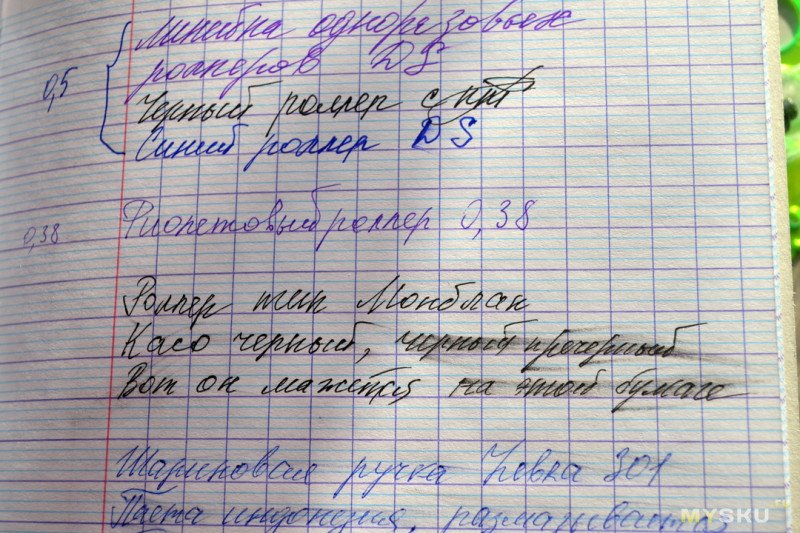 Линейка одноразовых
роллеров DS
0,5
Черный роллер
Синий роллер DS
Фиолетовый роллер 0,38
0,38
Роллер тип Монблан
Касо черный, черный пречерный
Вот он мажется на этой бумаге
Шариковая ручка 301
Паста индонезия, размазывается
MYSKU